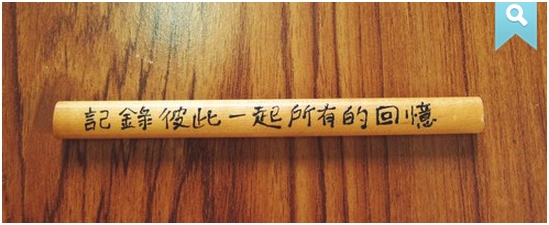 記錄彼此一起所有的回憶